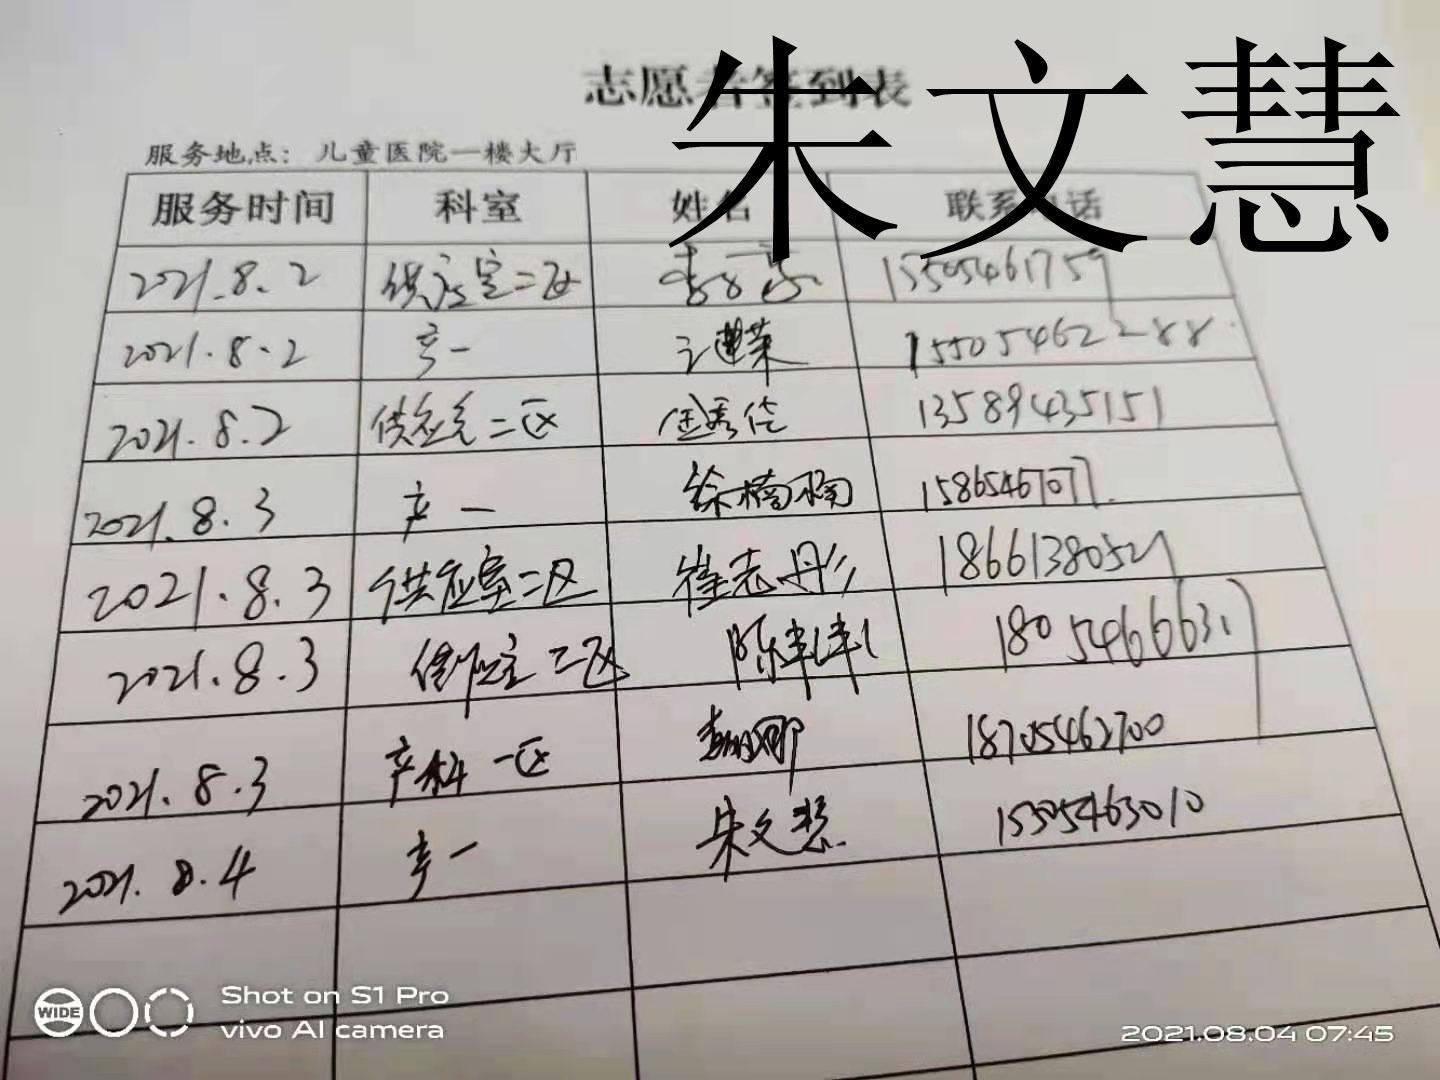 朱文慧
志愿者签到表
服务地点：儿童医院一楼大厅
服务时间 科室 姓名 联系电话
2021.8.2 供应室二区 15505461759
2021.8.2 产一 15505462288
2021.8.2 供应室二区 13589435151
2021.8.3 产一 徐楠楠 15865467077
2021.8.3 供应室二区 崔志彤 18661380521
2021.8.3 供应室二区 陈 18054666631
2021.8.3 产科一区 娜 18705462700
2021.8.4 产一 朱文慧 15505463010
WIDE Shot on S1 Pro
vivo AI camera
2021.08.04 07:45